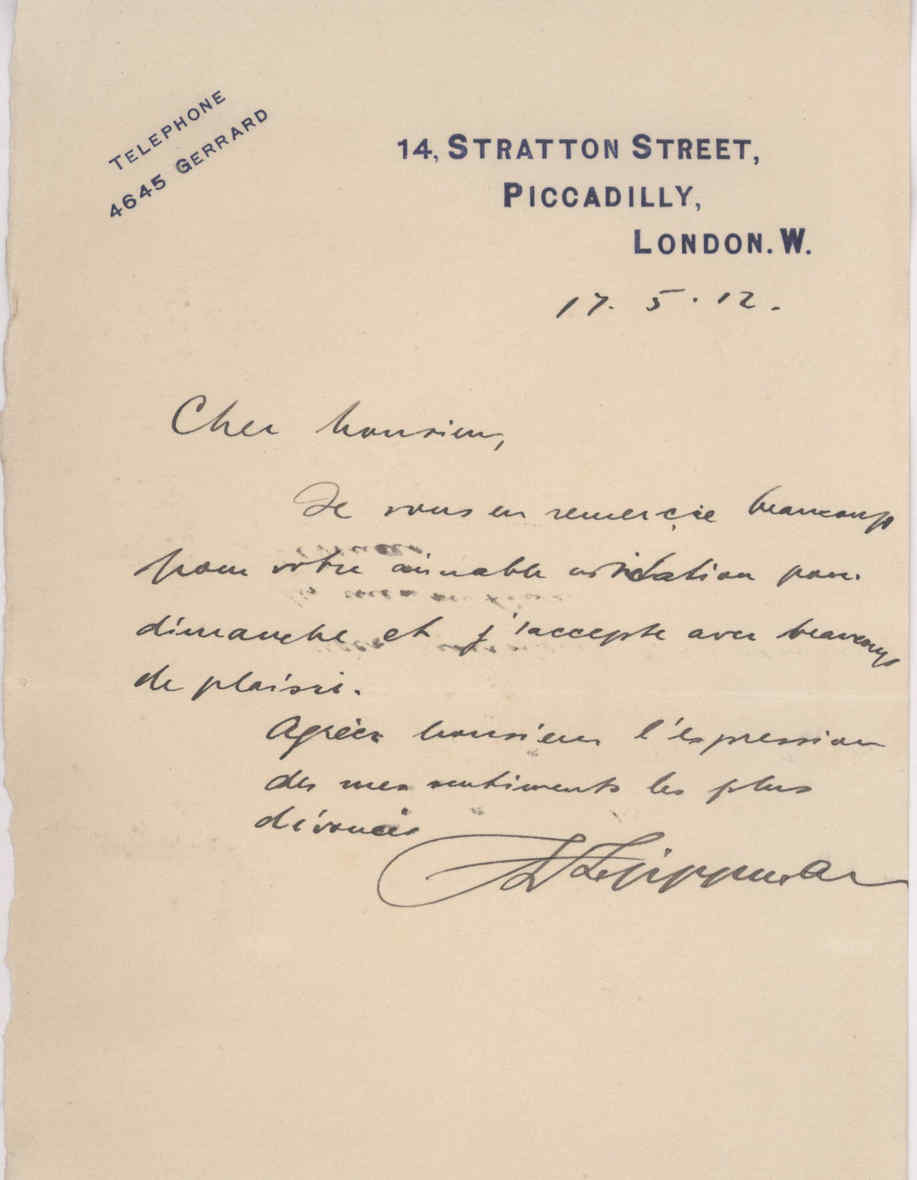 TELEPHONE
4645 GERRARD
14, STRATTON STREET,
PICCADILLY,
LONDON. W.
17. 5. 12.
Cher Monsieur,
Je vous en remercie beaucoup
pour votre aimable invitation pour
dimanche et j'accepte avec beaucoup
de plaisir.
Agréez Monsieur l'expression
des mes sentiments les plus
dévoués